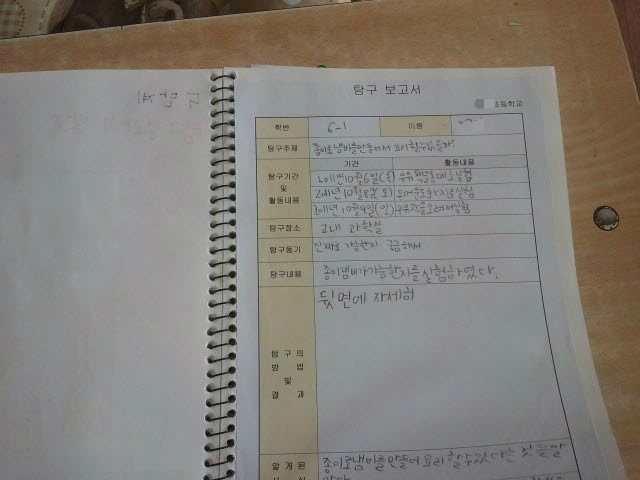 탐구 보고서
초등학교
학번 6-1 이름
탐구주제 종이로 냄비를 만들어서 요리할 수 있을까?
기간 활동내용
탐구기간 및 활동내용
2011년 10월 6일(목) 우유팩 실험
2011년 10월 8일(토) 실험
2011년 10월 9일(일) 실험
탐구장소 교내 과학실
탐구동기 진짜로 가능한지 궁금해서
탐구내용 종이냄비가 가능한지를 실험하였다.
탐구의 방법 및 결과 뒷면에 자세히
알게된 종이로 냄비를 만들어 요리 할 수 있다는 것을 알